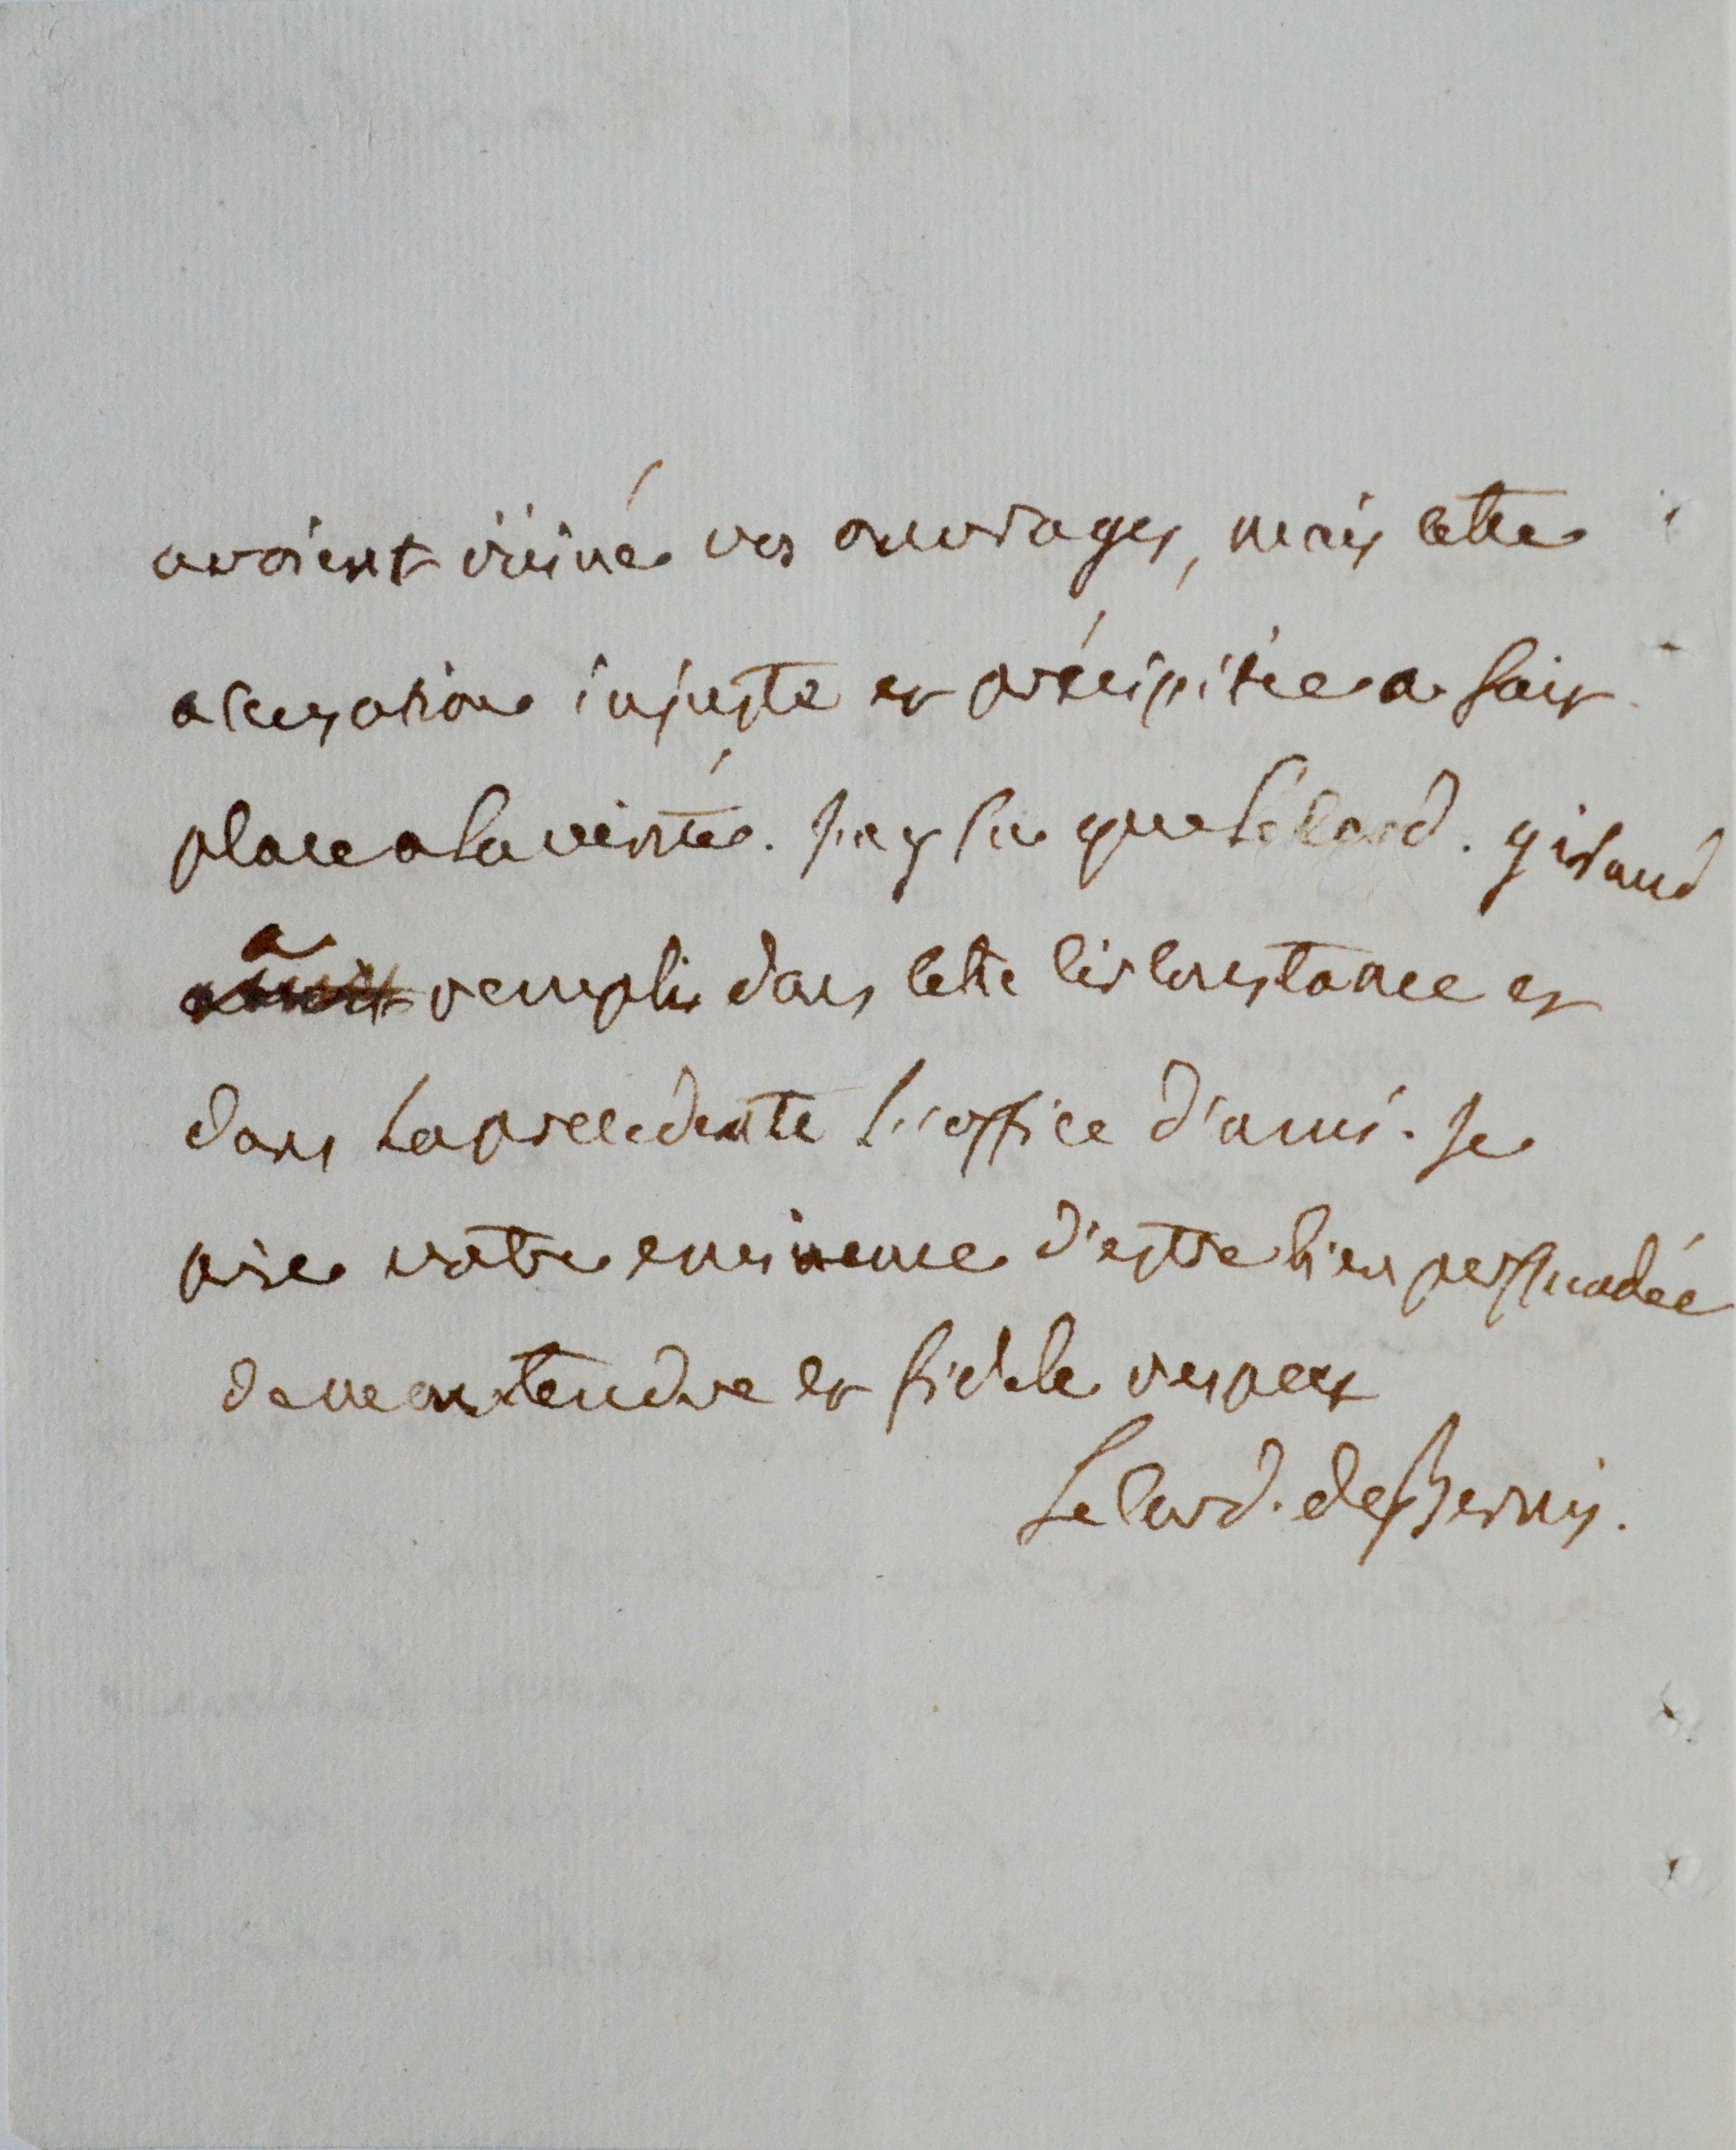 avoient ruiné vos ouvrages, mais cette
accusation injuste et précipitée a fait
place a la verité. J'ay sçu que le Card. giraud
a rempli dans cette circonstance et
dans la precedente l'office d'ami. Je
prie votre eminence d'estre bien persuadée
de mon tendre et fidele respect
Le Card. de Bernis.